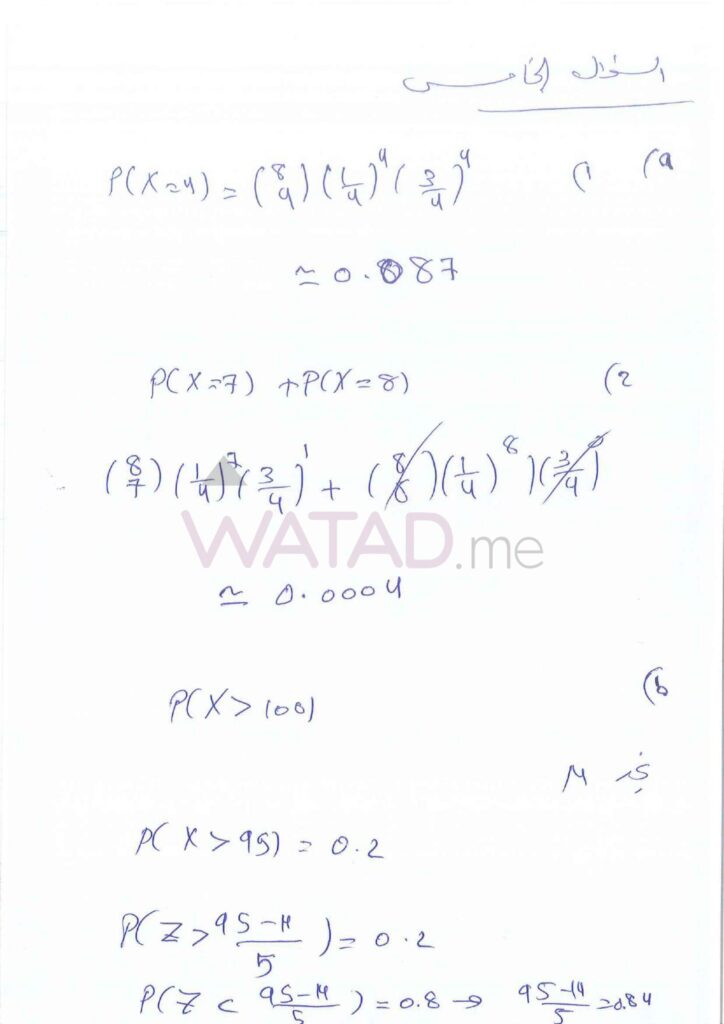 السؤال الخامس
a) 1) P(X=4) = (8 4) (1/4)^4 (3/4)^4
≃ 0.087
2) P(X=7) + P(X=8)
(8 7) (1/4)^7 (3/4)^1 + (8 8) (1/4)^8 ) (3/4)^0
WATAD.me
≃ 0.0004
b) P(X > 100)
نجد M
P( X > 95) = 0.2
P(Z > 95-M/5 ) = 0.2
P(Z < 95-M/5 ) = 0.8 → 95-M/5 = 0.84